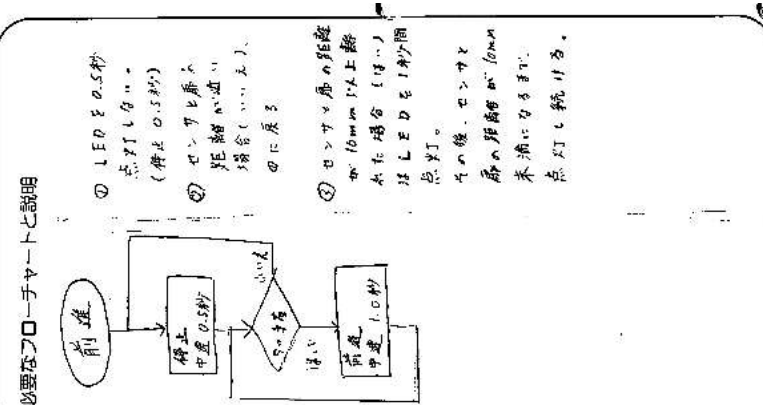 必要なフローチャートと説明
前進
停止
中速 0.5秒
いいえ
はい
前進
中速 1.0秒
① LEDを0.5秒
点灯しない。
(停止 0.5秒)
② センサと扉の
距離が近い
場合(いいえ)、
①に戻る
③ センサと扉の距離
が10mm以上離
れた場合(はい)
はLEDを1秒間
点灯。
その後、センサと
扉の距離が10mm
未満になるまで、
点灯し続ける。